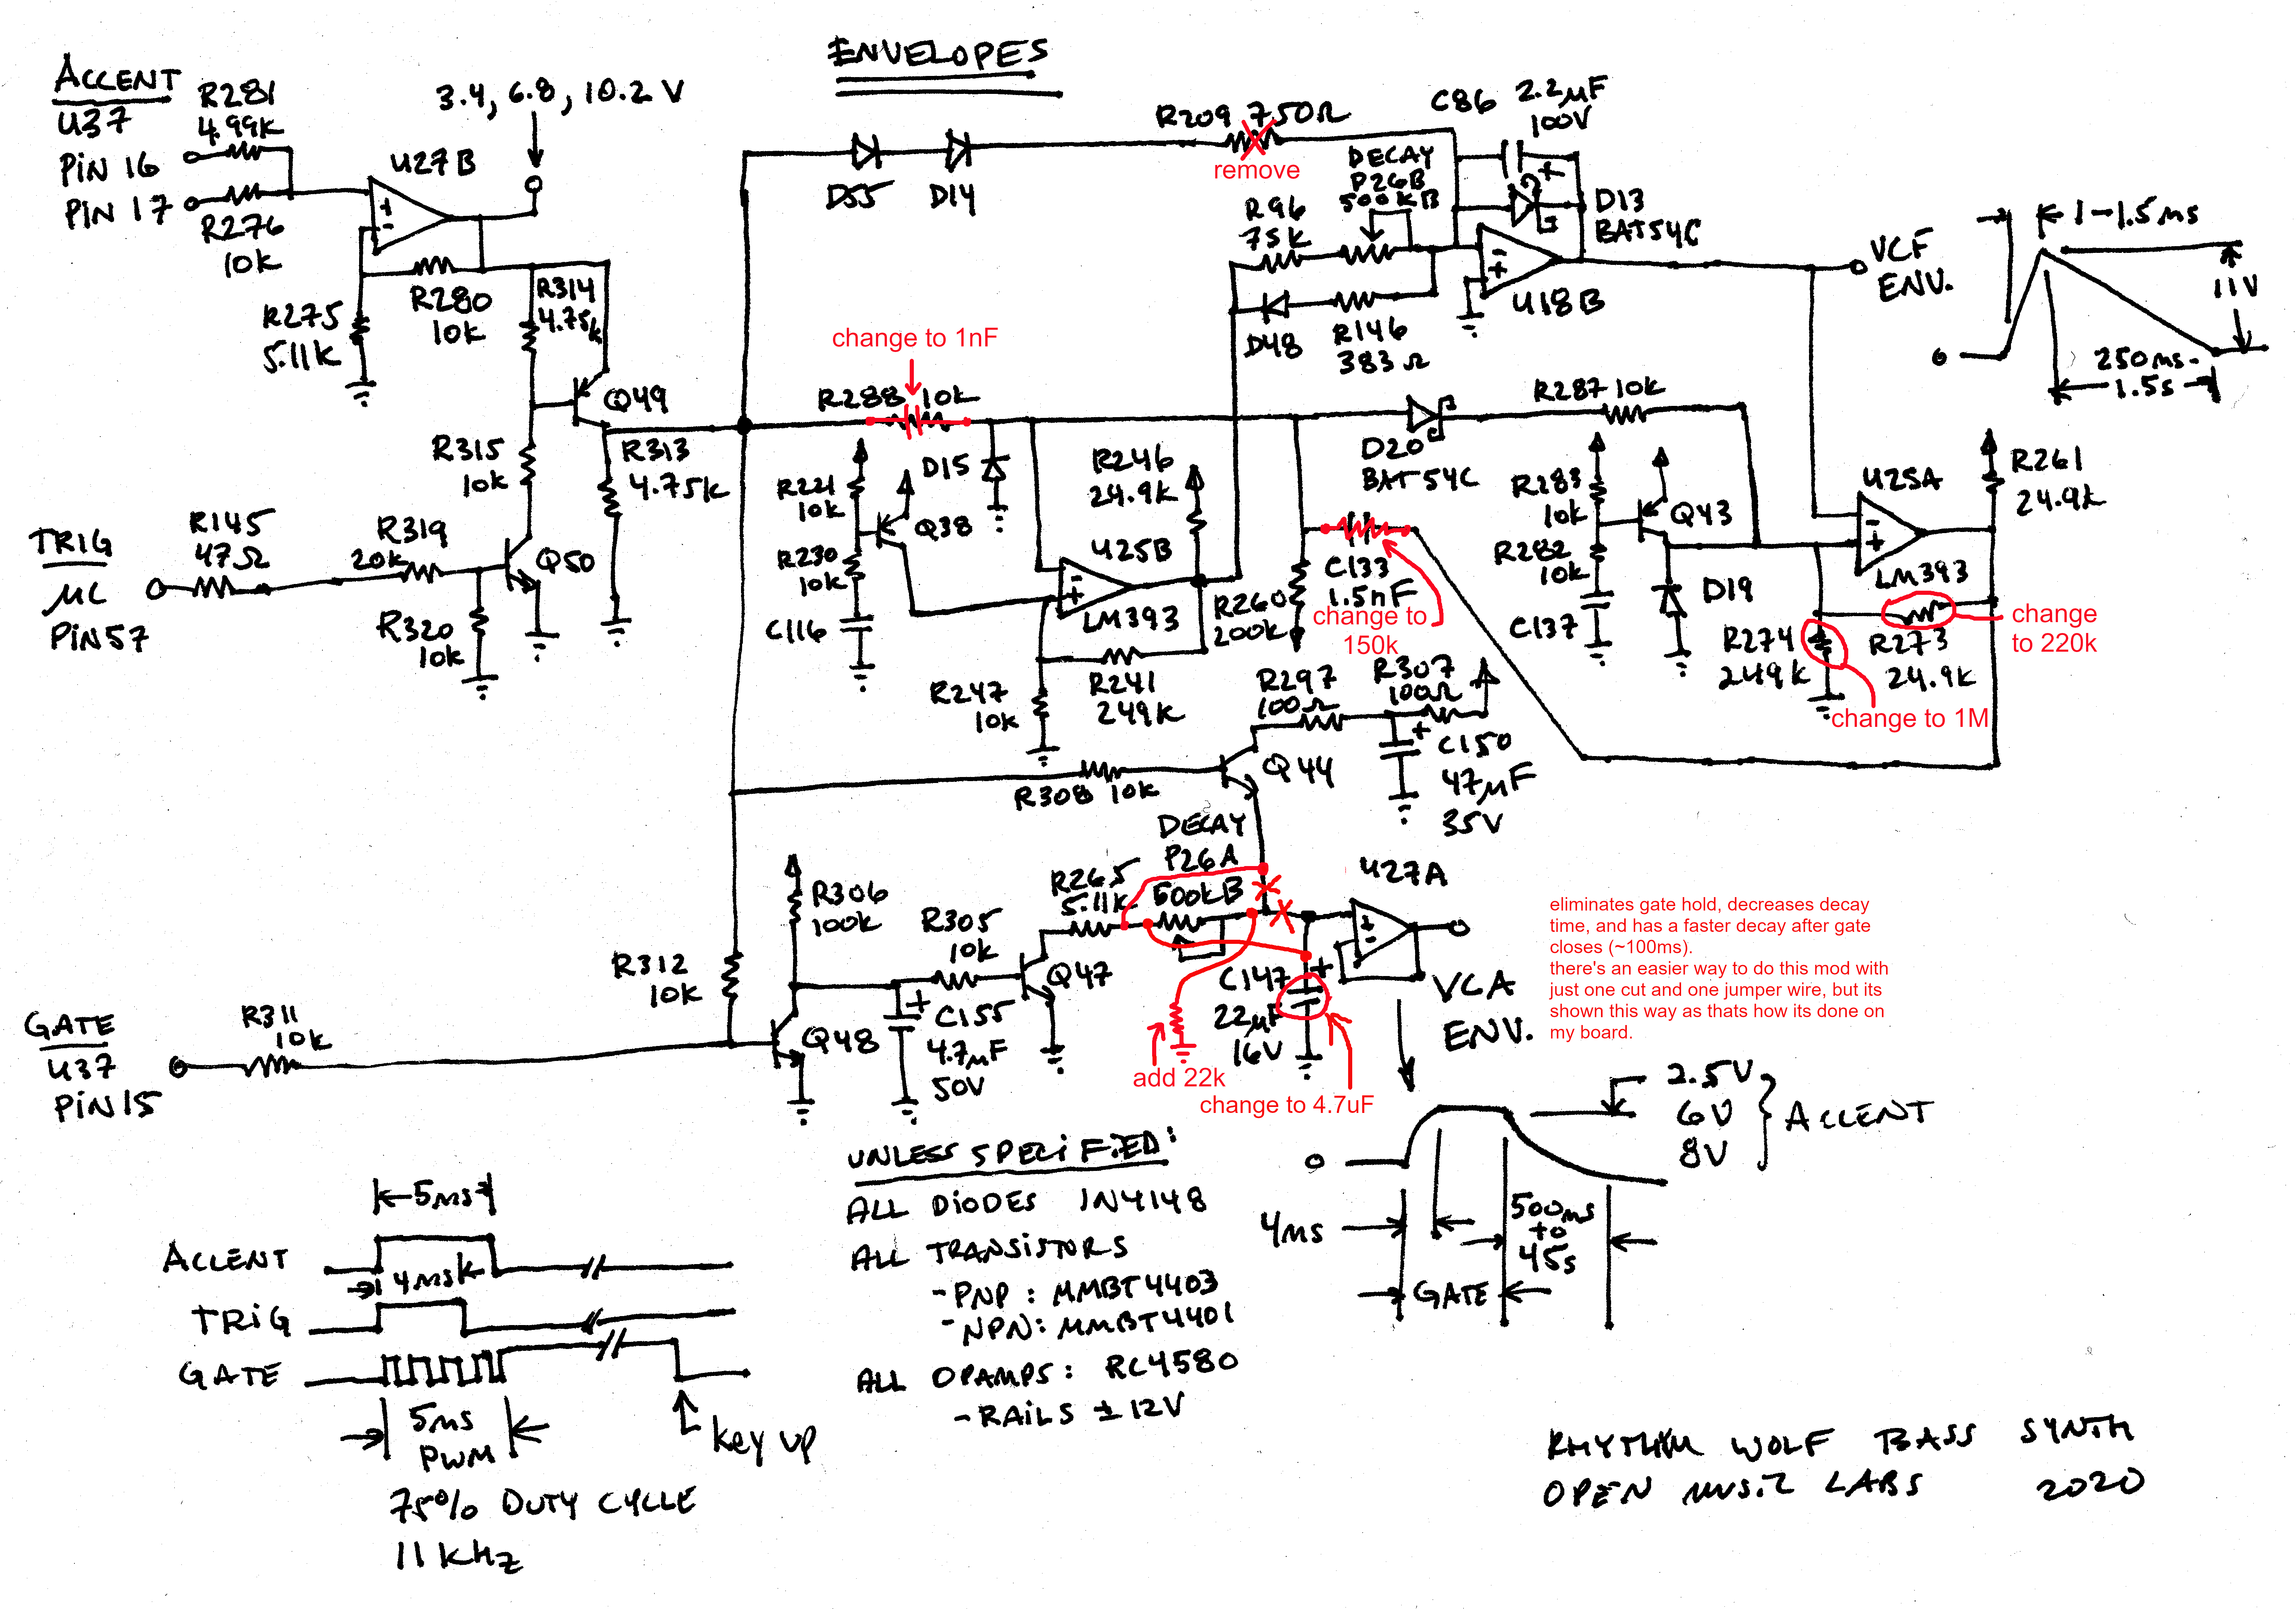 ENVELOPES
ACCENT
U37
PIN 16
PIN 17
R281
4.99K
R276
10K
U27B
3.4, 6.8, 10.2 V
R280
10K
R275
5.11K
R314
4.75K
Q49
R315
10K
R313
4.75K
TRIG
µC
PIN57
R145
47Ω
R319
20K
R320
10K
Q50
D55
D14
R209 750Ω
remove
C86 2.2µF
100V
DECAY
P26B
500KB
R96
75K
D13
BAT54C
D48
R146
383Ω
U18B
VCF
ENV.
1-1.5ms
11V
250ms-
1.5s
change to 1nF
R288 10K
R221
10K
R230
10K
C116
Q38
D15
R246
24.9K
U25B
LM393
R247
10K
R241
249K
R260
200K
D20
BAT54C
R287 10K
C133
1.5nF
change to
150k
R283
10K
R282
10K
C137
Q43
D19
U25A
LM393
R261
24.9K
R274
249K
R273
24.9K
change
to 220k
change to 1M
R297
100Ω
R307
100Ω
C150
47µF
35V
R308 10K
Q44
DECAY
P26A
500KB
R265
5.11K
U27A
R306
100K
R305
10K
Q47
R312
10K
Q48
C155
4.7µF
50V
C147
22µF
16V
VCA
ENV.
add 22k
change to 4.7uF
eliminates gate hold, decreases decay
time, and has a faster decay after gate
closes (~100ms).
there's an easier way to do this mod with
just one cut and one jumper wire, but its
shown this way as thats how its done on
my board.
GATE
U37
PIN15
R311
10K
2.5V
6V
8V
ACCENT
0
4ms
500ms
to
45s
GATE
5ms
ACCENT
4ms
TRIG
GATE
5ms
PWM
75% DUTY CYCLE
11KHz
KEY UP
UNLESS SPECIFIED:
ALL DIODES 1N4148
ALL TRANSISTORS
-PNP: MMBT4403
-NPN: MMBT4401
ALL OPAMPS: RC4580
-RAILS ± 12V
RHYTHM WOLF BASS SYNTH
OPEN MUSIC LABS 2020